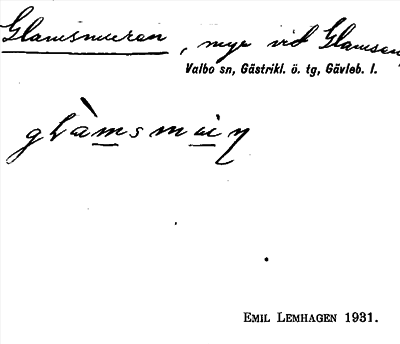 Glamsmuren, myr vid Glamsen,
Valbo sn, Gästrikl. ö. tg, Gävleb. l.
EMIL LEMHAGEN 1931.